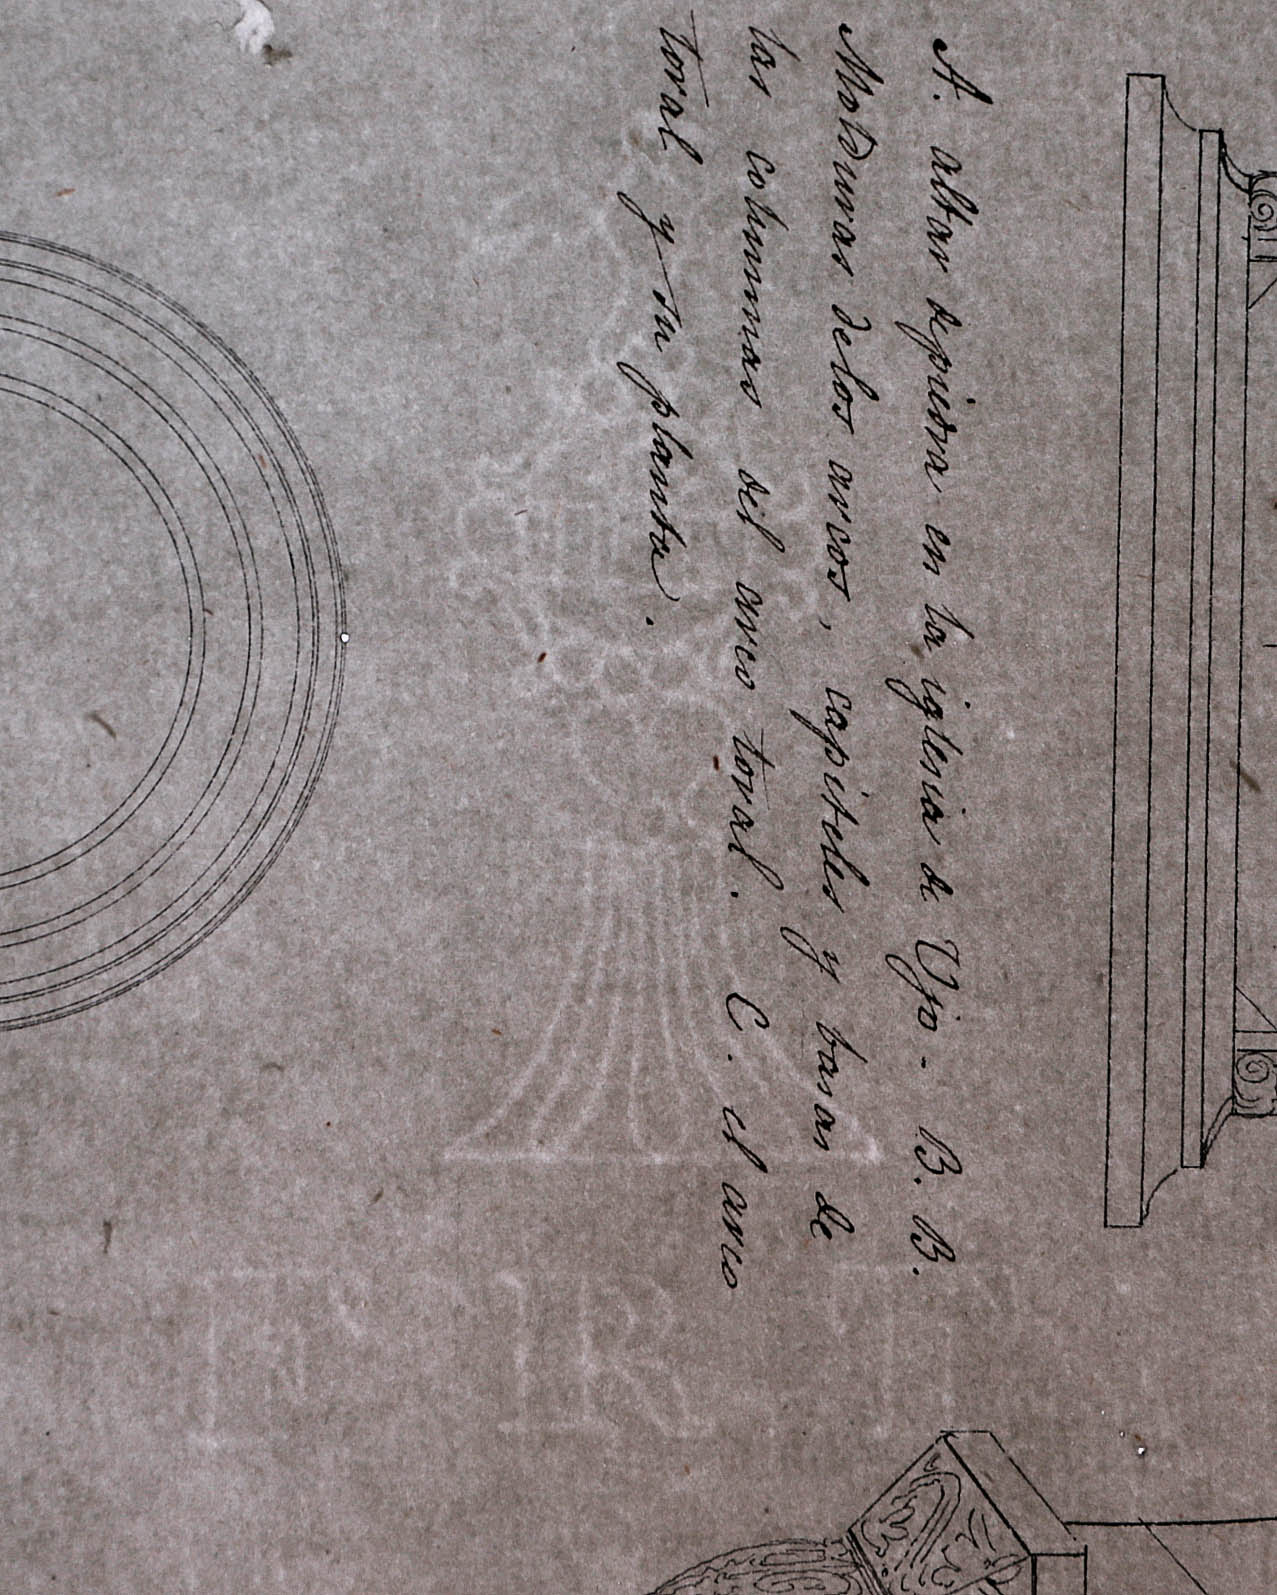 A. altar depiedra en la iglesia de Ujo - B. B.
Molduras delos arcos, capiteles y basas de
las columnas del arco toral. C. el arco
toral y su planta.